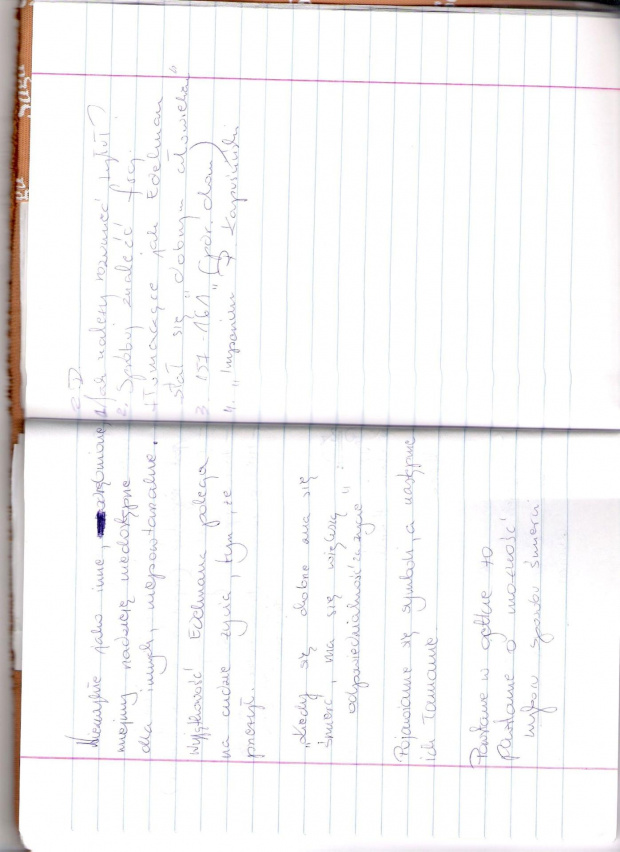 jako inne,
miejmy nadzieję niedostępne
dla innych, niepowtarzalne.
Wyjątkowość Edelmana polega
na cudze życia, tym, że
przeżył.
"Kiedy się dobrze zna się
śmierć, ma się większą
odpowiedzialność za życie"
Pojawianie się symboli, a następnie
ich łamanie
Powstanie w getcie to
Powstanie o możność
wyboru sposobu śmierci
C.D.
1. Jak należy rozumieć tytuł?
2. Spróbuj znaleźć frag.
tłumaczące jak Edelman
stał się "dobrym
3. 157-161 (por. dom)
4. "Imperium" Kapuściński